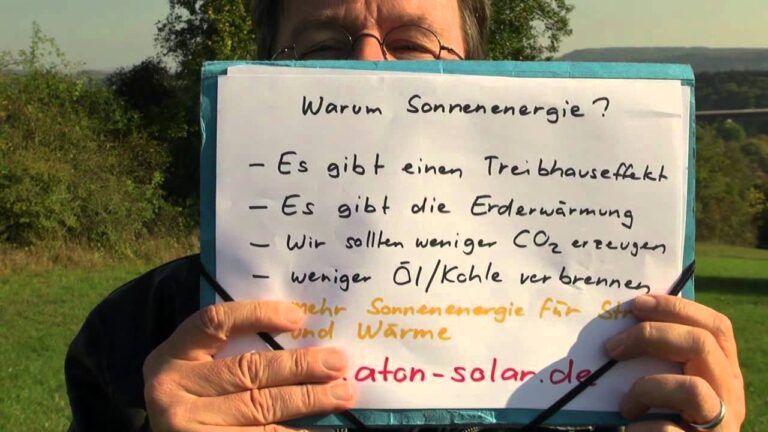 Warum Sonnenenergie?
- Es gibt einen Treibhauseffekt
- Es gibt die Erderwärmung
- Wir sollten weniger CO₂ erzeugen
- weniger Öl/Kohle verbrennen
mehr Sonnenenergie für
und Wärme
.aton-solar.de